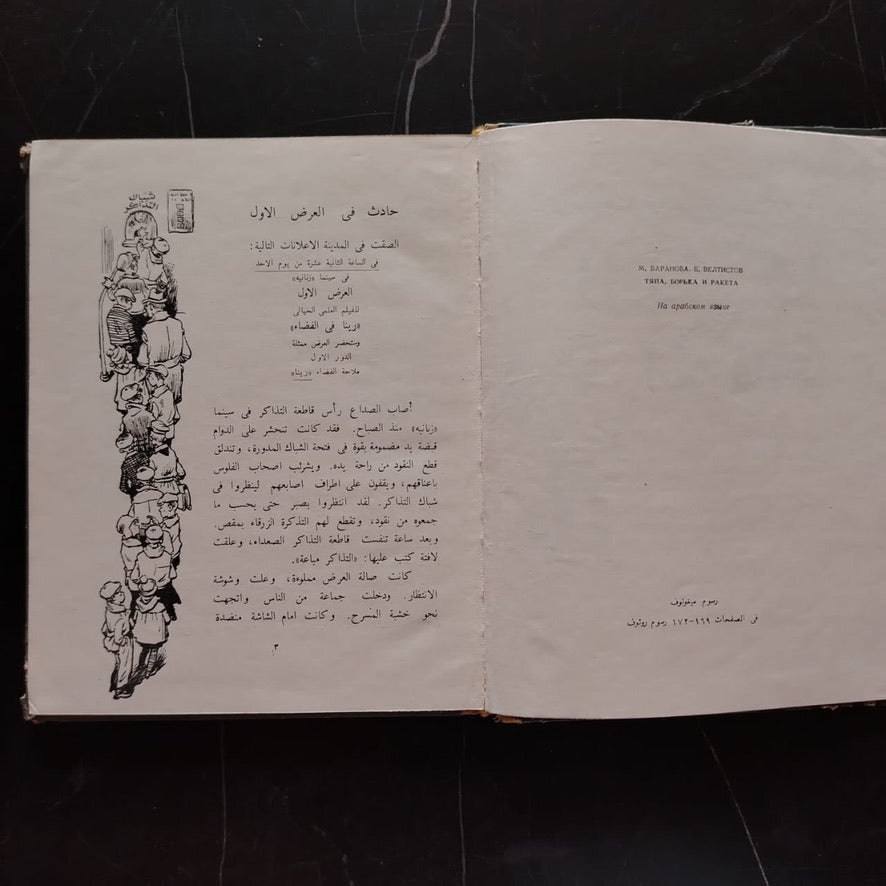 М. БАРАНОВА, Е. ВЕЛТИСТОВ
ТЯПА, БОРЬКА И РАКЕТА
На арабском языке
رسوم ميغونوف
فى الصفحات ١٦٩–١٧٢ رسوم روتوف
شباك
التذاكر
حادث فى العرض الاول
الصقت فى المدينة الاعلانات التالية:
فى الساعة الثانية عشرة من يوم الاحد
فى سينما «زنانيه»
العرض الاول
للفيلم العلمى الخيالى
«رينا فى الفضاء»
وستحضر العرض ممثلة
الدور الاول
ملاحة الفضاء «رينا»
أصاب الصداع رأس قاطعة التذاكر فى سينما
«زنانيه» منذ الصباح. فقد كانت تنحشر على الدوام
قبضة يد مضمومة بقوة فى فتحة الشباك المدورة، وتندلق
قطع النقود من راحة يده. ويشرئب اصحاب الفلوس
باعناقهم، ويقفون على اطراف اصابعهم لينظروا فى
شباك التذاكر. لقد انتظروا بصبر حتى يحسب ما
جمعوه من نقود، وتقطع لهم التذكرة الزرقاء بمقص.
وبعد ساعة تنفست قاطعة التذاكر الصعداء، وعلقت
لافتة كتب عليها: «التذاكر مباعة».
كانت صالة العرض مملوءة، وعلت وشوشة
الانتظار. ودخلت جماعة من الناس واتجهت
نحو خشبة المسرح. وكانت امام الشاشة منضدة
٣